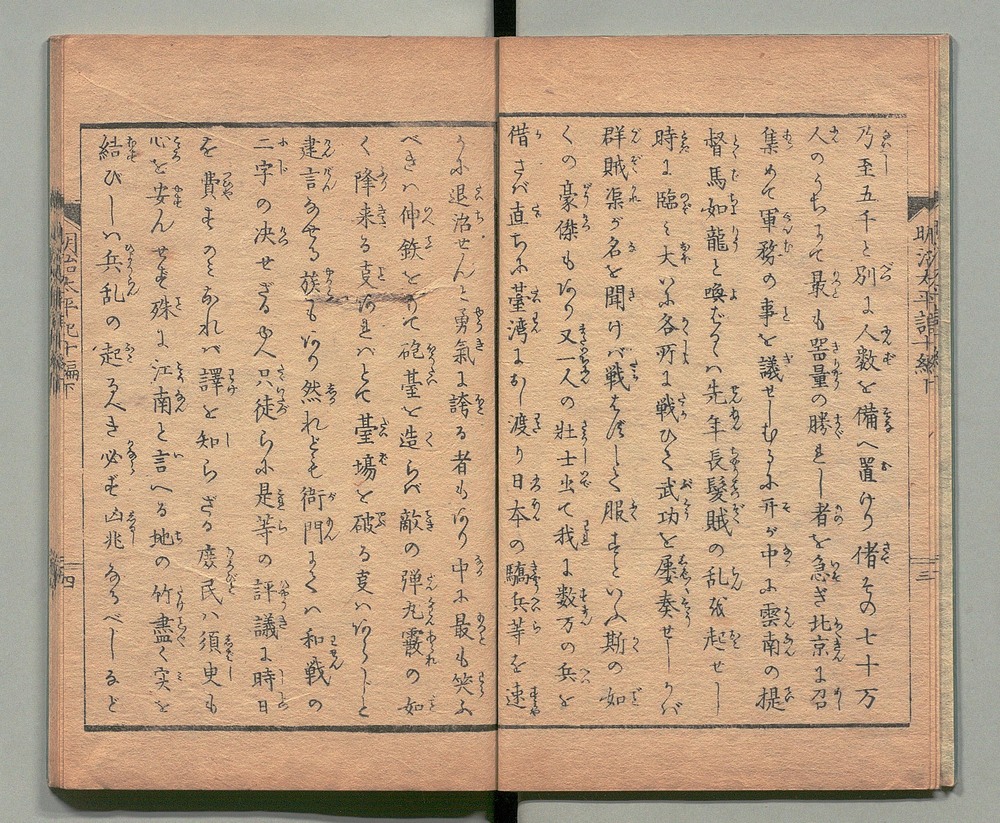 乃至五千と別に人数を備へ置けり偖その七十万
人のうちにて最も器量の勝れし者を急ぎ北京に召
集めて軍務の事を議せしむるに開が中に雲南の提
督馬如龍と喚なるハ先年長髪賊の乱を起せし
時に臨ミ大いに各所に戦ひて武功を屡奏せしかバ
群賊渠が名を聞けバ戦はずして服すといふ斯の如
くの豪傑もあり又一人の壮士出て我に数万の兵を
借さバ直ちに臺湾におし渡り日本の驕兵等を速
かに退治せんと勇氣に誇る者もあり中に最も笑ふ
べきハ伸鉄をもて砲臺を造らバ敵の弾丸霰の如
く降来る事あれバとて臺場を破る事ハあらじと
建言なせる族もあり然れども衙門にてハ和戦の
二字の决せざる故只徒らに是等の評議に時日
を費すのミなれバ譯を知らざる庶民ハ須臾も
心を安んせず殊に江南と言へる地の竹盡く実を
結びしハ兵乱の起るべき必ず凶兆なるべしなど
明治太平記十編下
三
明治太平記十編下
四